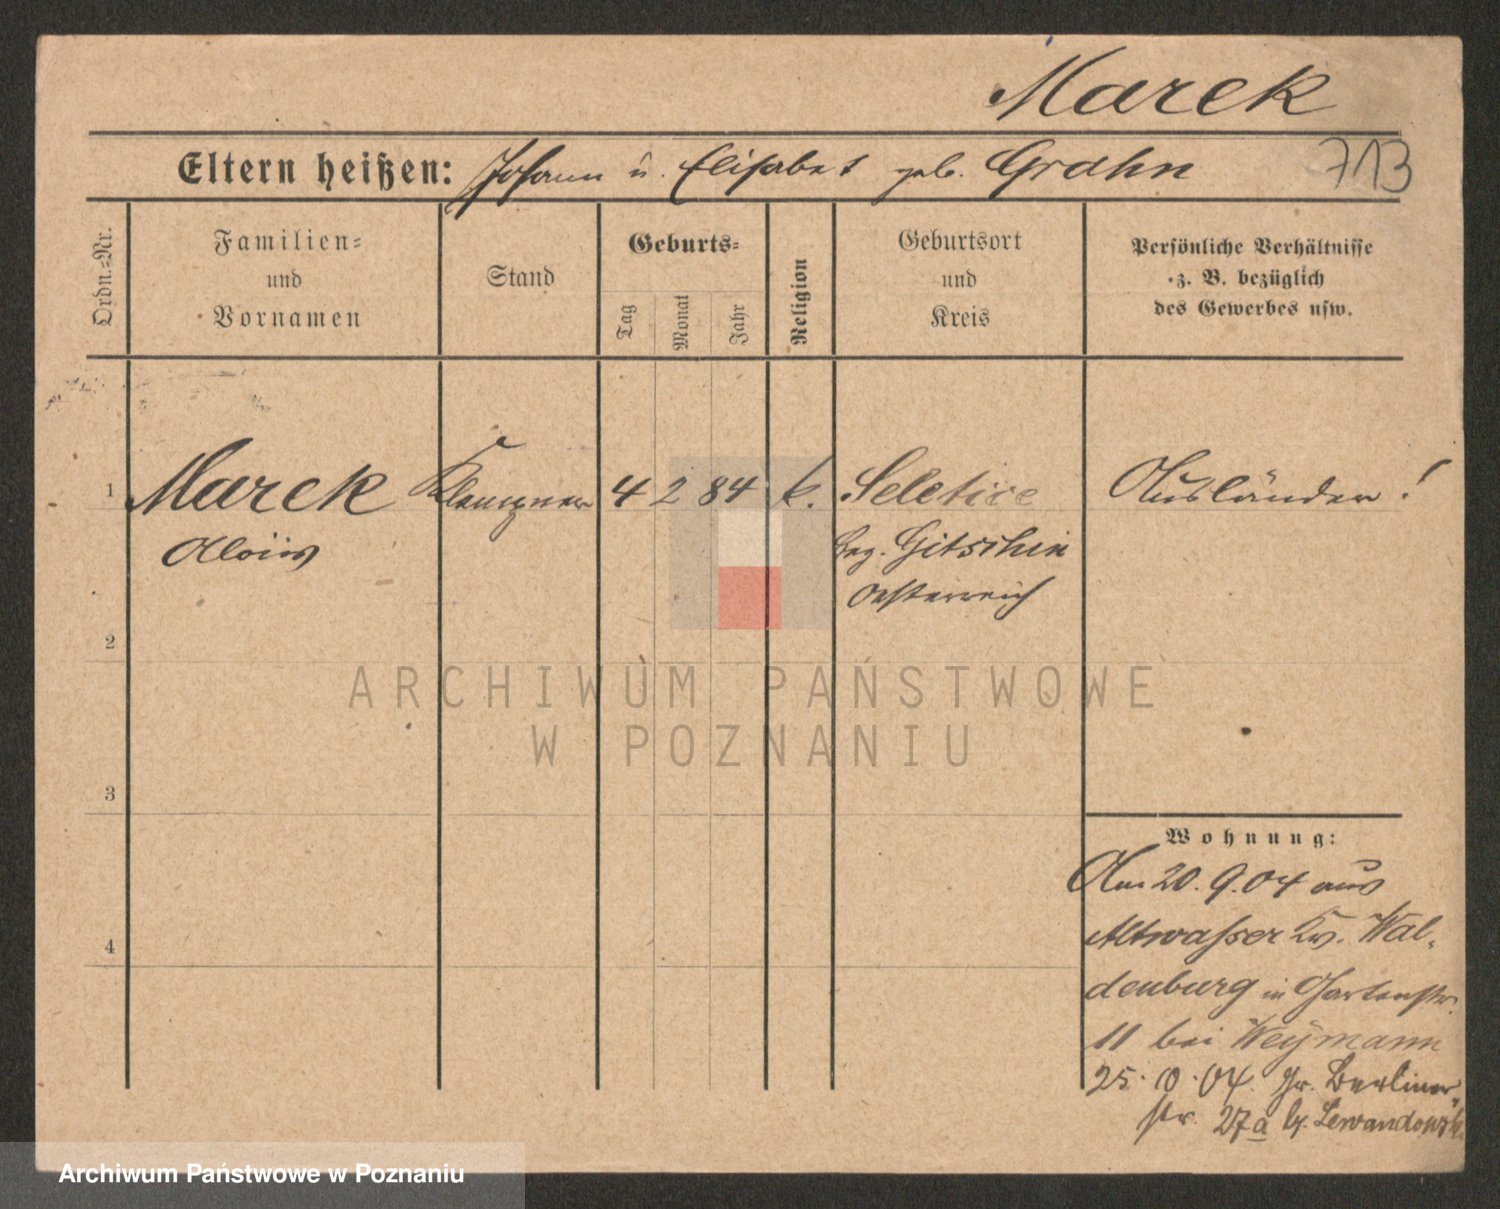 Marek
713
Eltern heißen: Johann u. Elisabet geb. Grahn
Ordn.=Nr.
Familien=
und
Vornamen
Stand
Geburts=
Tag
Monat
Jahr
Religion
Geburtsort
und
Kreis
Persönliche Verhältnisse
z. B. bezüglich
des Gewerbes usw.
1 Marek Klempner 4 2 84 k. Seletice Ausländer!
Alois Bez. Gitschin
Oesterreich
2
ARCHIWUM PAŃSTWOWE
W POZNANIU
3
Wohnung:
Am 20.9.04 aus
Altwasser Kr. Wal-
4
denburg in Gartenstr.
11 bei Weymann
25.10.04. Gr. Berliner-
str. 27a b.
Archiwum Państwowe w Poznaniu